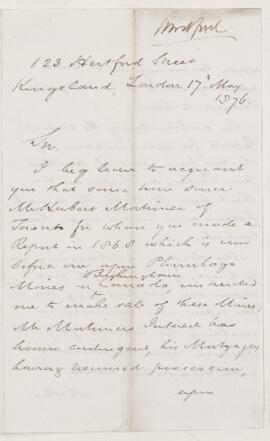 123 Hertford Street
Kingsland, London 17th May
1876.
Sir.
I beg leave to acquaint
you that some time since
Mr Herbert Mortimer of
Toronto for whom you made a
Report in 1868 which is now
before me upon Plumbago
Mines in Buckingham Canada, instructed
me to make sale of these Mines;
Mr Mortimers Interest has
become contingent, his Mortgagees
having assumed possession,
upon